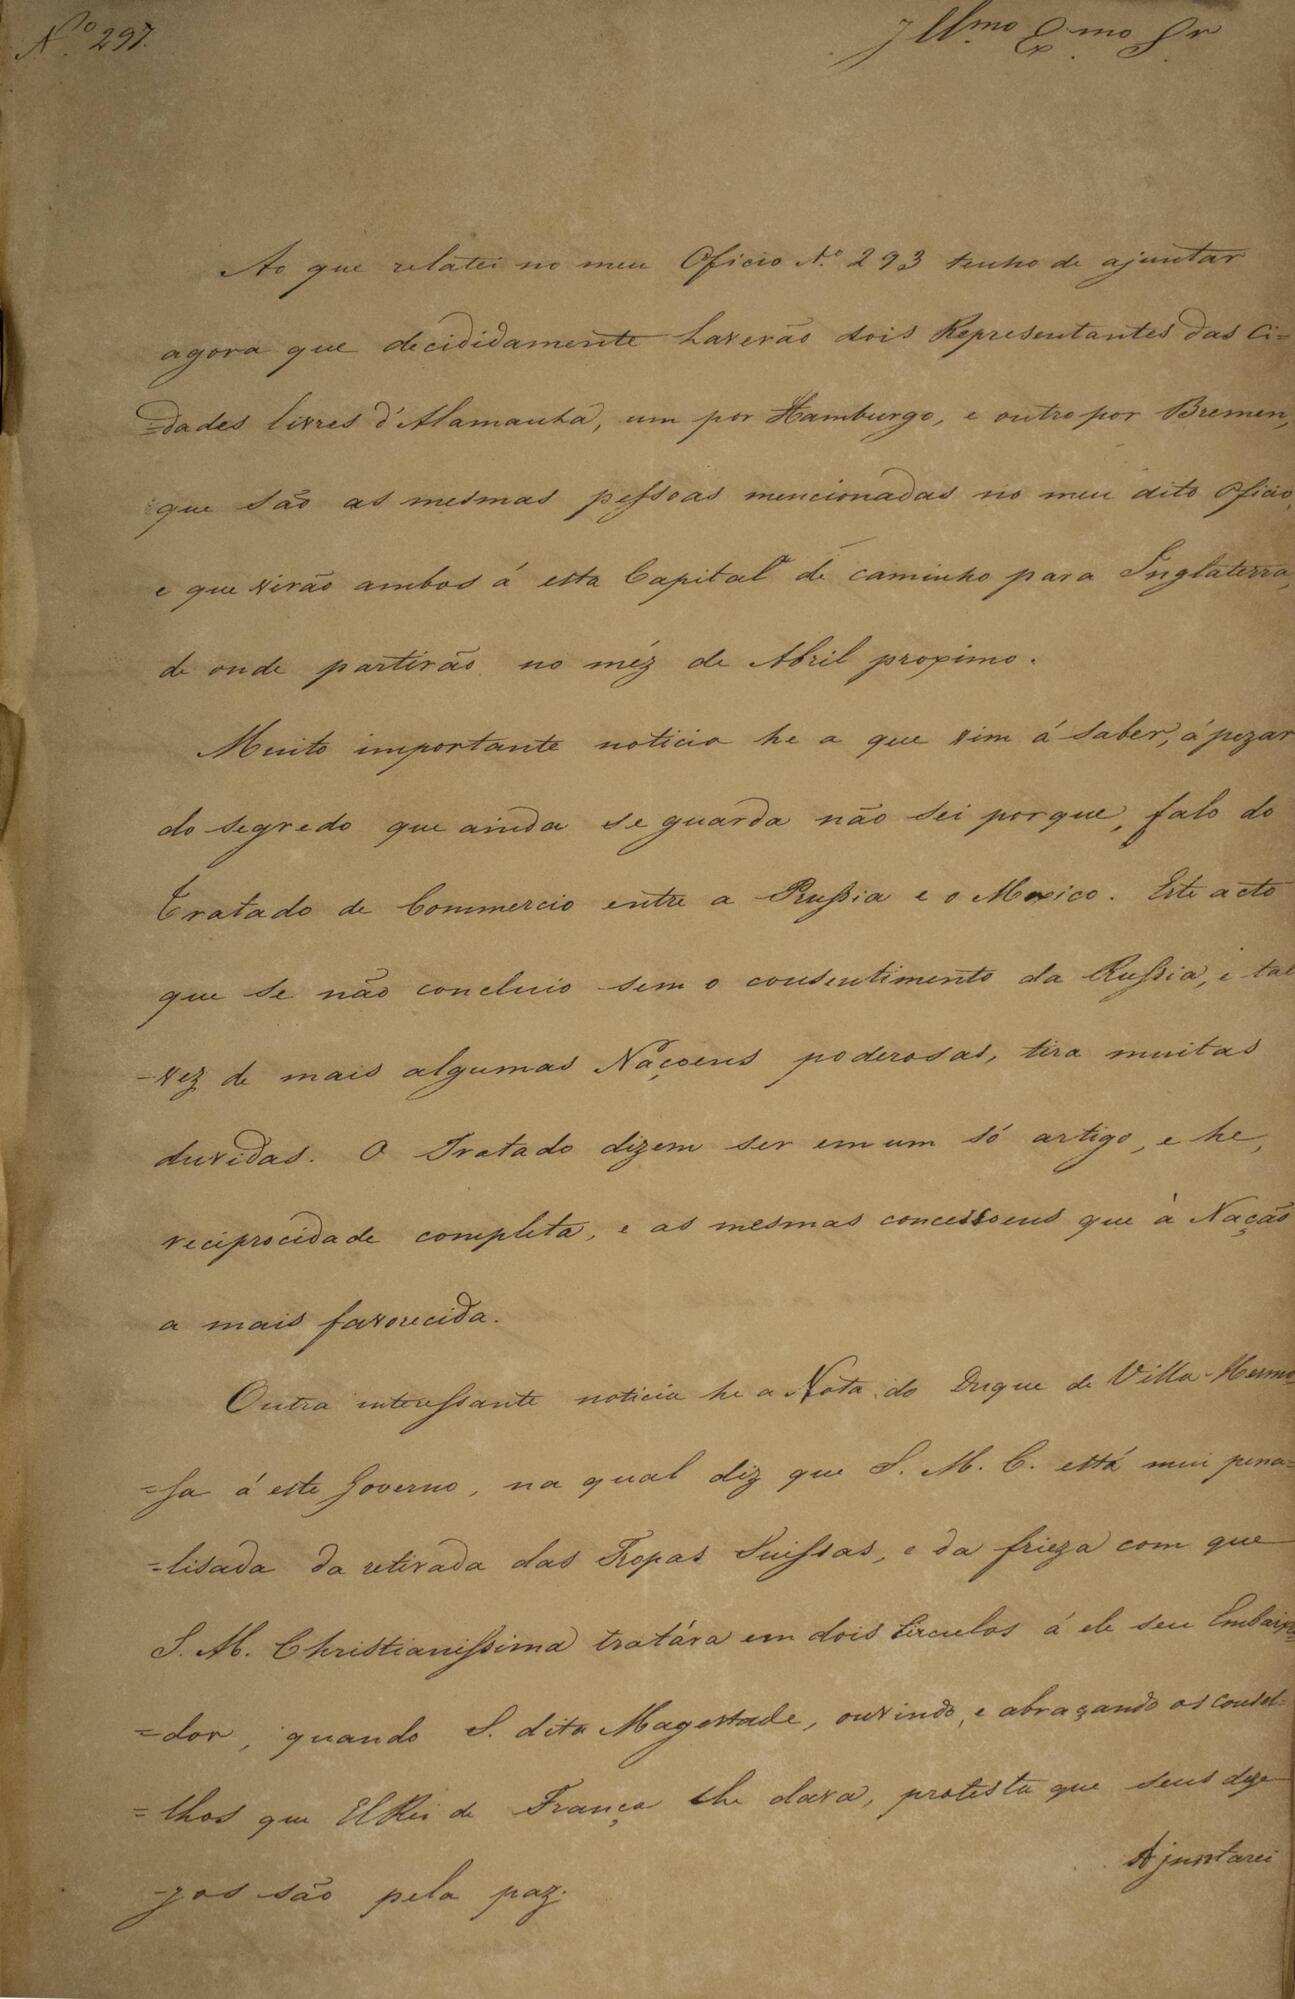 N.º 297.
Illmo Exmo Sr
Ao que relatei no meu Oficio N.º 293 tenho de ajuntar
agora que decididamente haverão dois Representantes das Ci=
=dades livres d'Alamanha, um por Hamburgo, e outro por Bremen,
que são as mesmas pessoas mencionadas no meu dito Oficio,
e que virão ambos á esta Capital de caminho para Inglaterra,
de onde partirão no méz de Abril proximo.
Muito importante noticia he a que vim á saber, á pezar
do segredo que ainda se guarda não sei porque, falo do
Tratado de Commercio entre a Prussia e o Mexico. Este acto
que se não concluio sem o consentimento da Russia, e tal
-vez de mais algumas Naçoens poderosas, tira muitas
duvidas. O Tratado dizem ser em um só artigo, e he,
reciprocidade completa, e as mesmas concessoens que à Nação
a mais favorecida.
Outra interessante noticia he a Nota do Duque de Villa-Hermo
=sa á este Governo, na qual diz que S. M. C. está mui pena=
=lisada da retirada das Tropas Suissas, e da frieza com que
S. M. Christianissima tratára em dois Circulos á ele seu Embaixa=
=dor, quando S. dita Magestade, ouvindo, e abraçando os conse=
=lhos que ElRei de França lhe dava, protesta que seus deze
jos são pela paz.
Ajuntarei